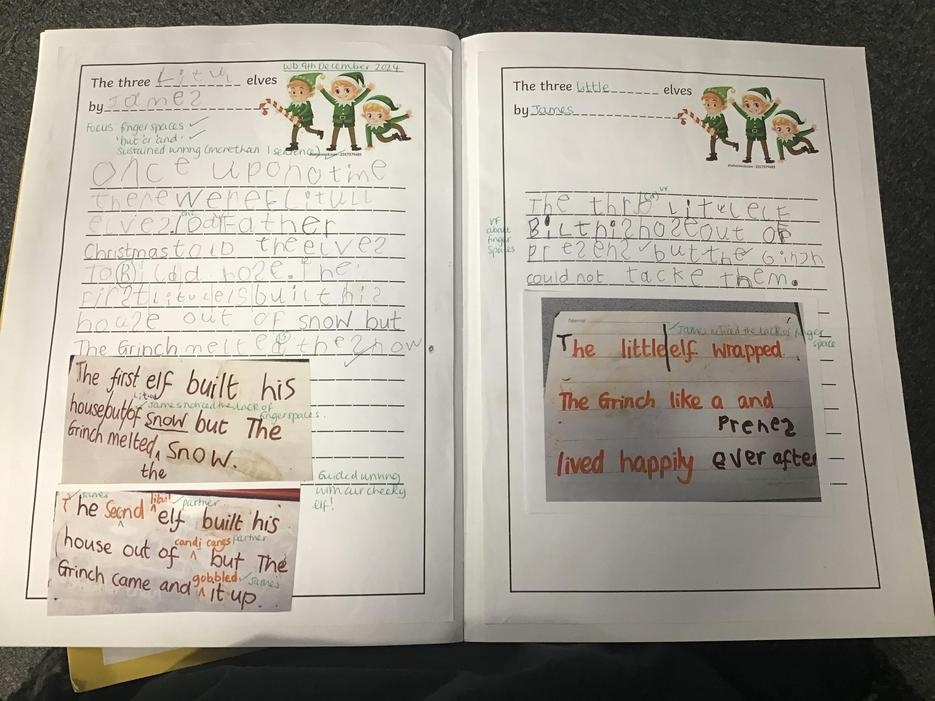 Wb 9th December 2024
The three Litul elves
by James
Focus finger spaces ✓
'but' or 'and' ✓
sustained writing (more than 1 sentence) ✓
Once upon a time
there were Litull
elves. Father
Christmas told the elves
to Bild hoze. The
First Lituel built his
houze out of snow but
The Grinch melted the snow.
The first elf built his
house out of snow but The
James noticed the lack of
finger spaces.
Grinch melted snow.
the
Guided writing
with our cheeky
elf!
James
litul
partner
The Secnd elf built his
candi cangs partner
house out of but The
gobbled James
Grinch came and it up.
The three little elves
by James
VF
The thrb Litul elf
VF
about
finger
spaces
Bilt his hoze out of
prezenz but the Ginzh
could not tacke them.
James noticed the lack of finger
space
The little elf wrapped
The Grinch like a and
Prenez
lived happily ever after